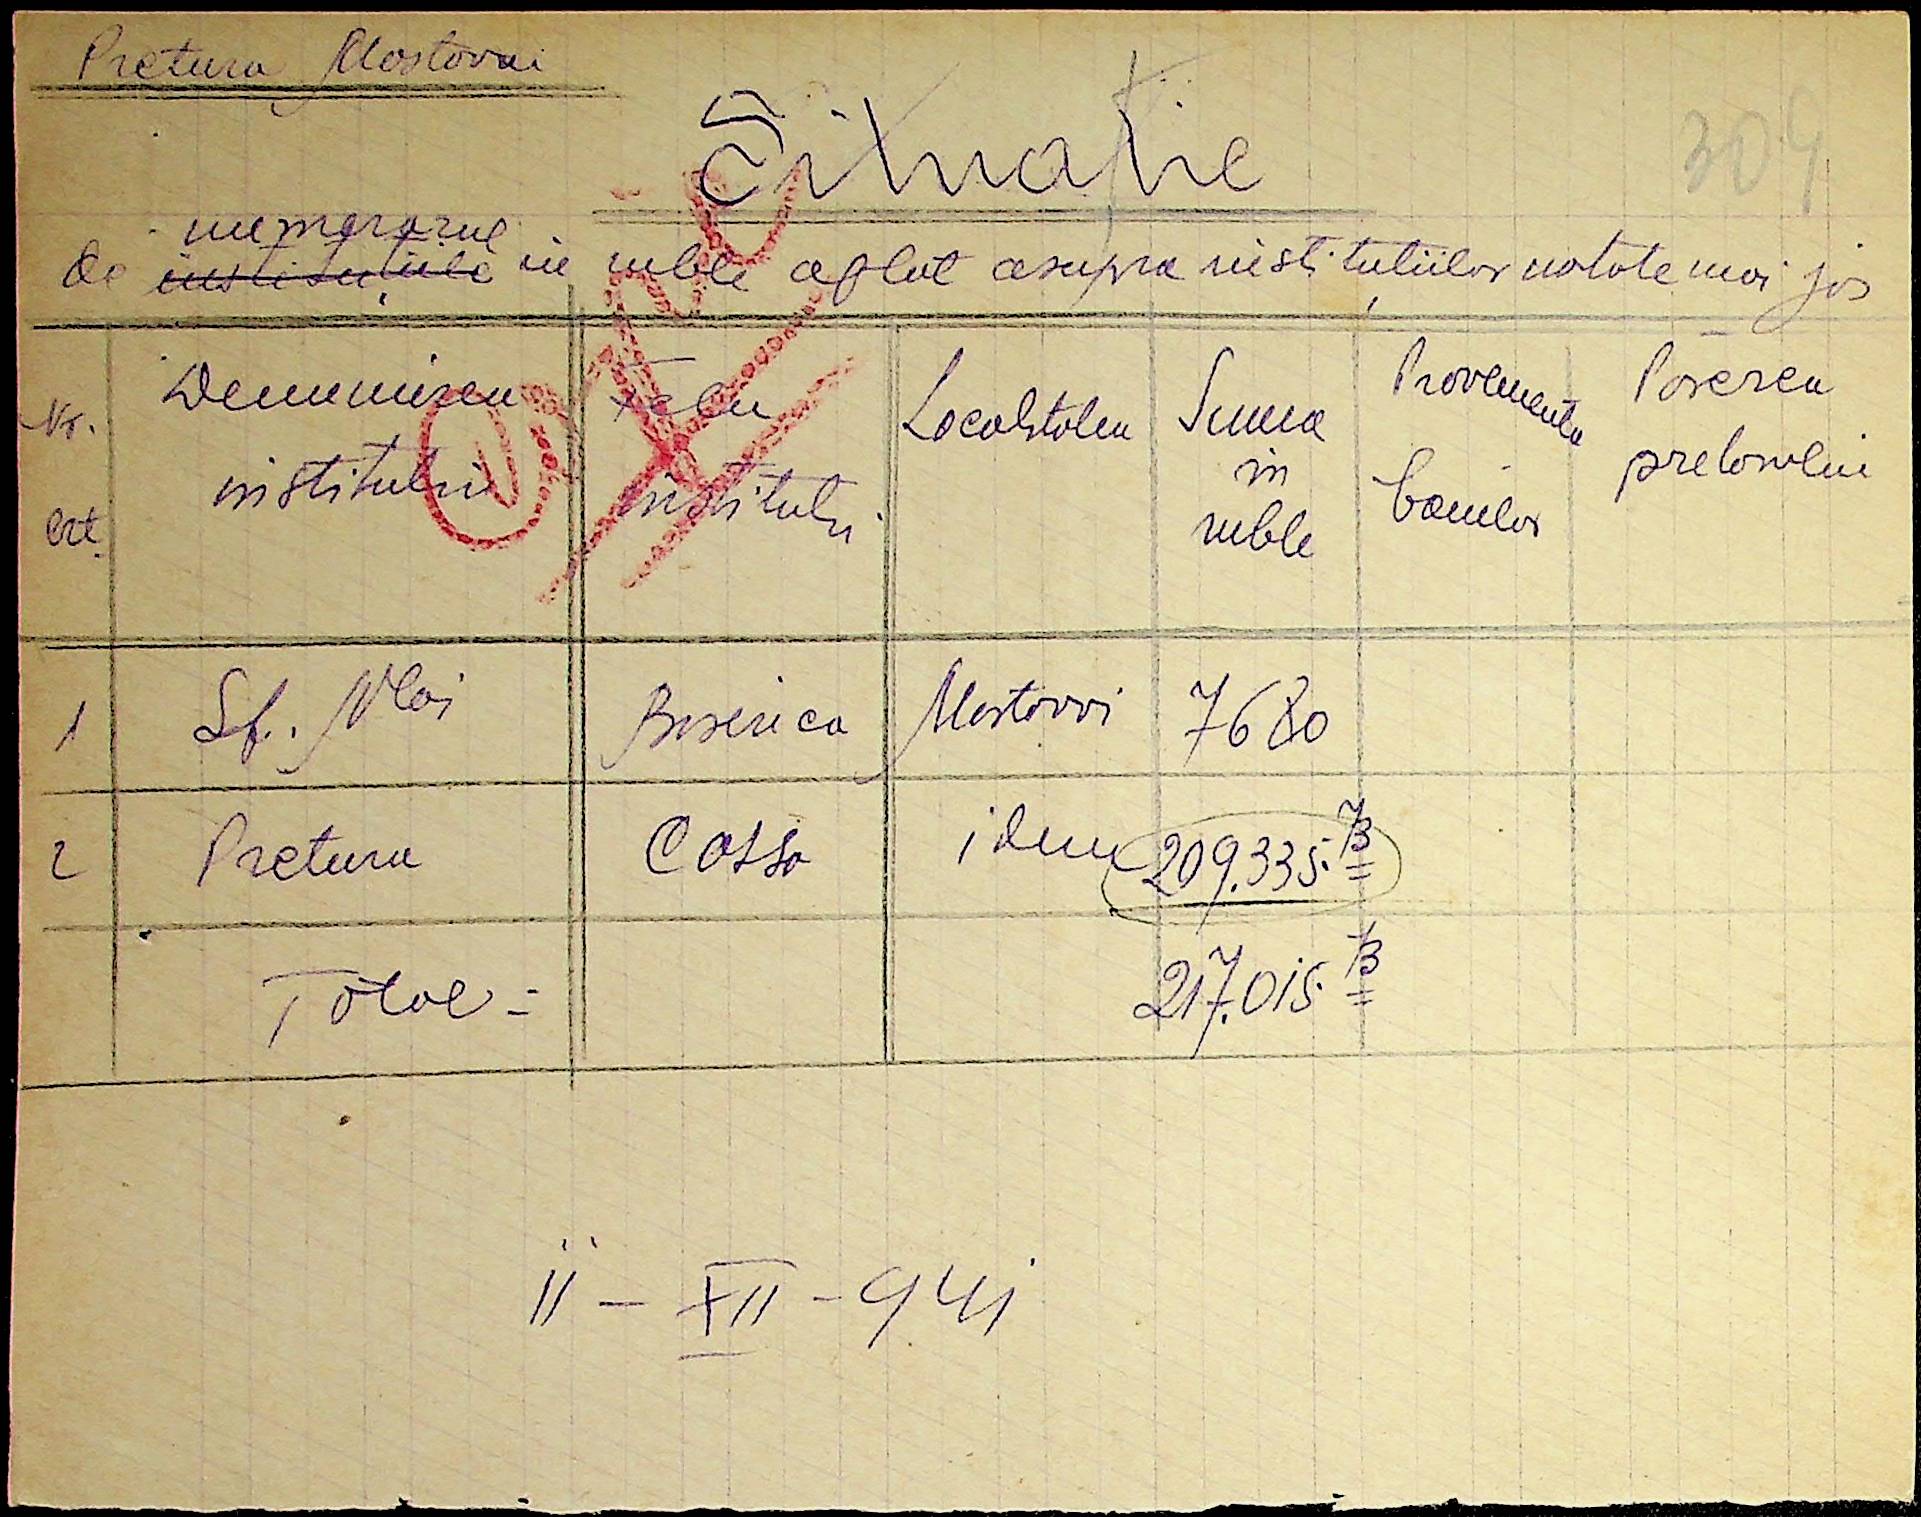 Pretura Mostovoi
309
Situație
numerarul
de instituțiile in ruble aflat asupra instituțiilor notate mai jos
Nr. crt.
Denumirea institului
Felu institului
Localitatea
Suma in ruble
Provenienta banilor
Parerea pretorului
1 Sf. Nlai Biserica Mostovoi 7680
2 Pretura Cassa idem 209.335.73
Total = 217.015.73
11 - XII - 941